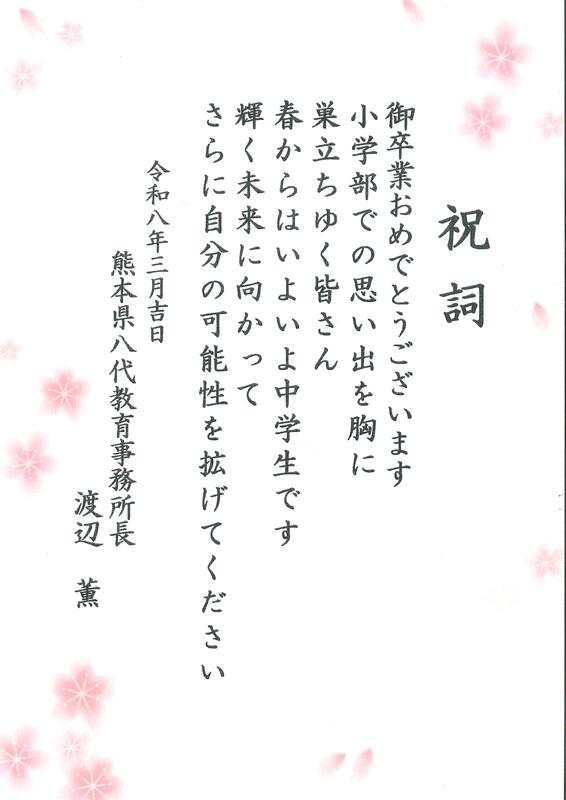 祝詞
御卒業おめでとうございます
小学部での思い出を胸に
巣立ちゆく皆さん
春からはいよいよ中学生です
輝く未来に向かって
さらに自分の可能性を拡げてください
令和八年三月吉日
熊本県八代教育事務所長
渡辺　薫